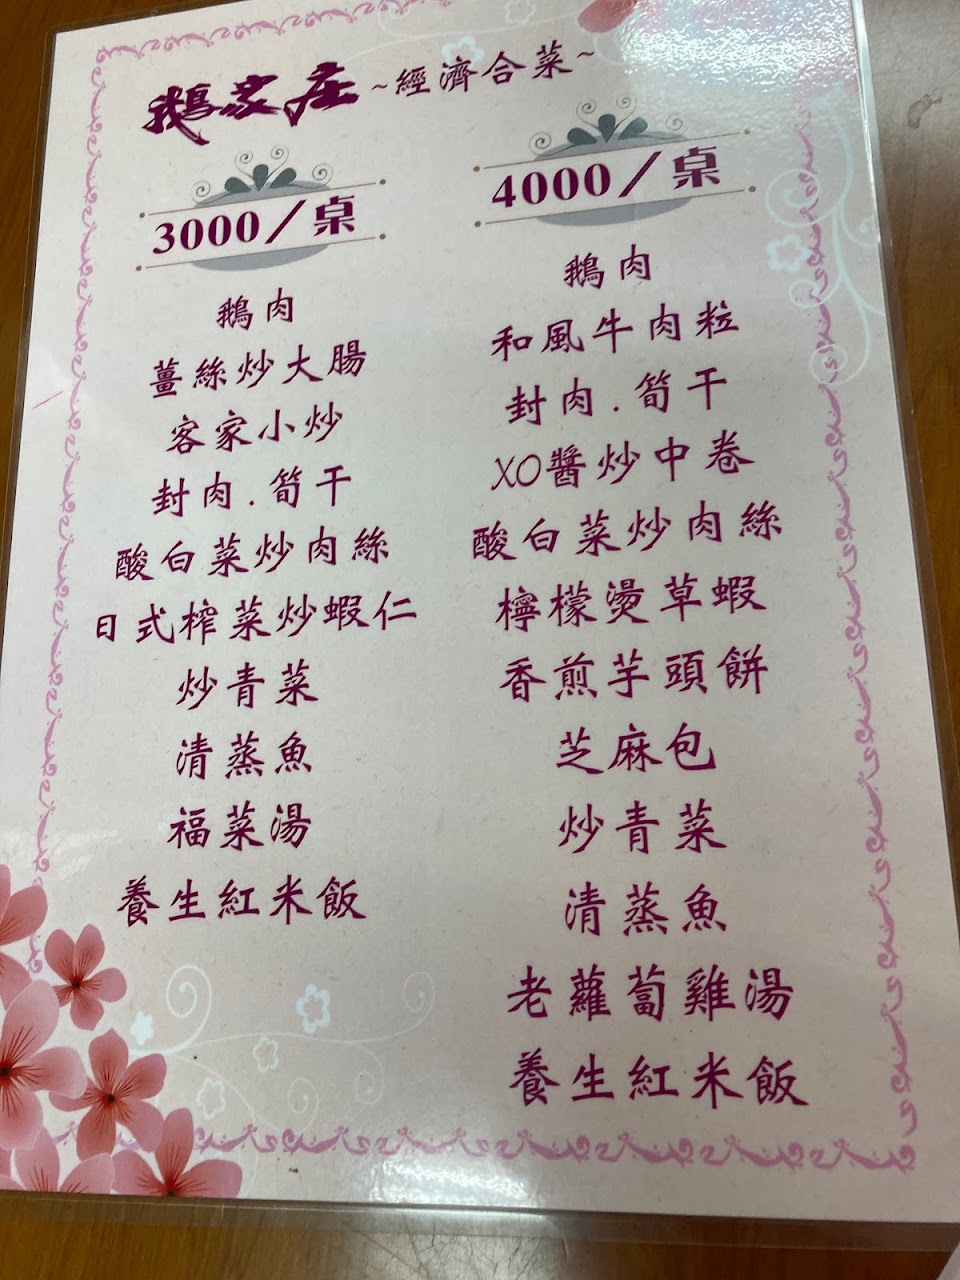 鵝家庄 ~經濟合菜~
3000/桌
鵝肉
薑絲炒大腸
客家小炒
封肉.筍干
酸白菜炒肉絲
日式榨菜炒蝦仁
炒青菜
清蒸魚
福菜湯
養生紅米飯
4000/桌
鵝肉
和風牛肉粒
封肉.筍干
XO醬炒中卷
酸白菜炒肉絲
檸檬燙草蝦
香煎芋頭餅
芝麻包
炒青菜
清蒸魚
老蘿蔔雞湯
養生紅米飯